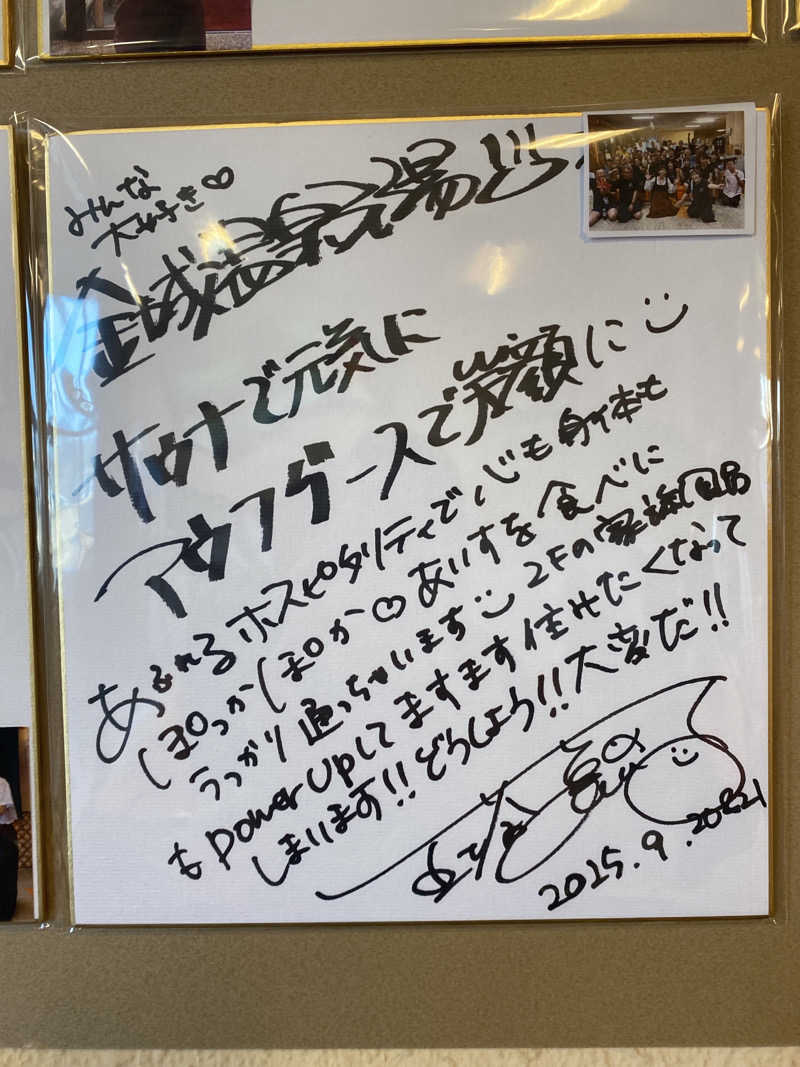 みんな
大好き♡
金城温泉元湯どう
サウナで元気に
アウフグースで笑顔に
あふれるホスピタリティで心も身体も
ぽっかしぽか♡あいすを食べに
うっかり通っちゃいます 2Fの家族風呂
もpowerUPしてますます住みたくなって
しまいます!!どうしよう!!大変だ!!
2025.9.20&21